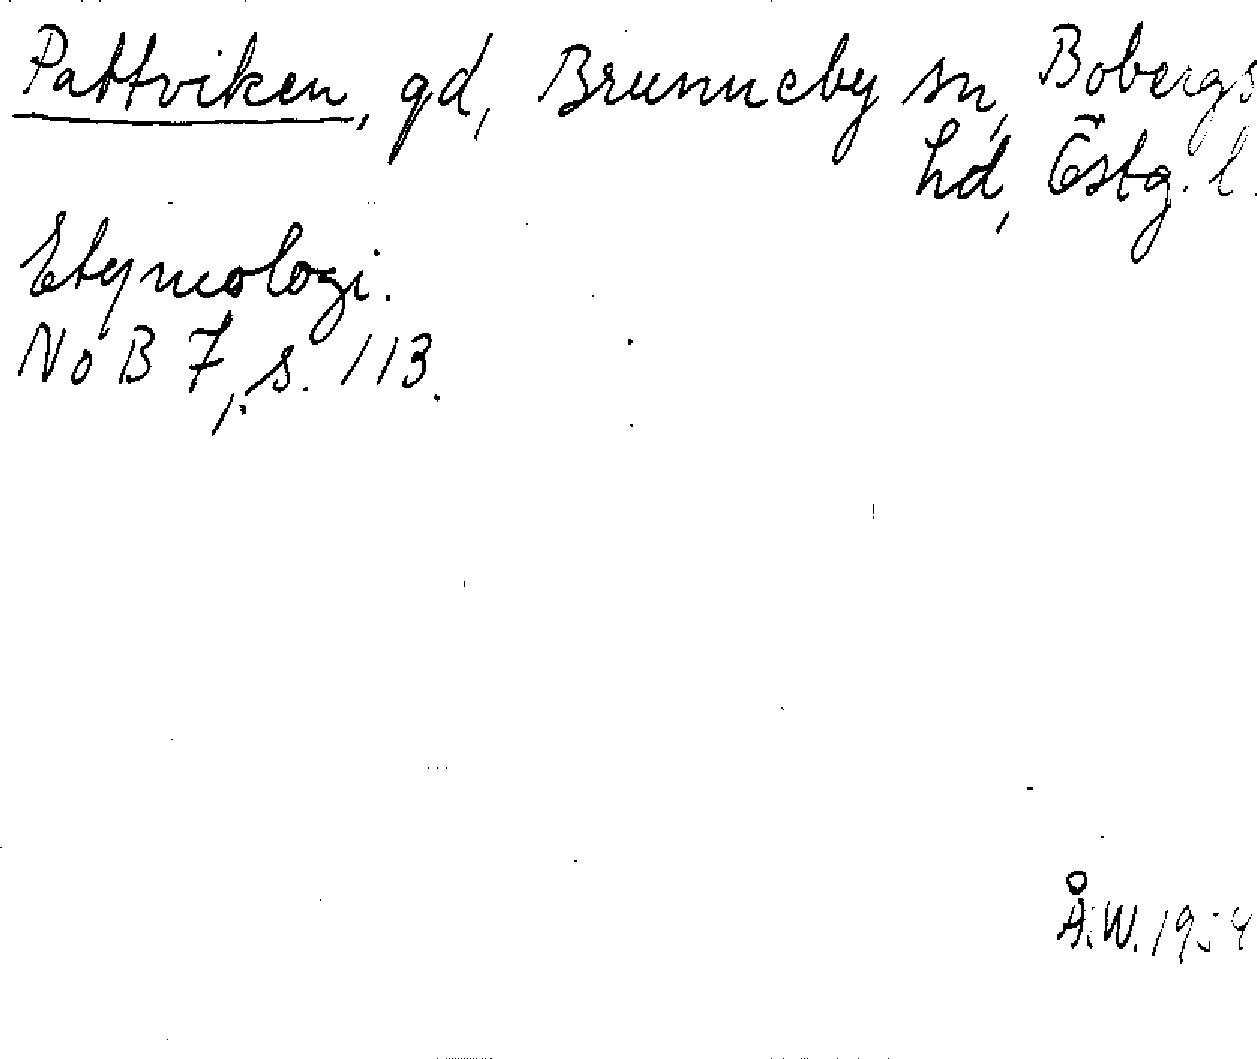 Pattviken, gd, Brunneby sn, Bobergs
hd, Östg. l.
Etymologi.
NoB 7, s. 113.
Å.W. 1954